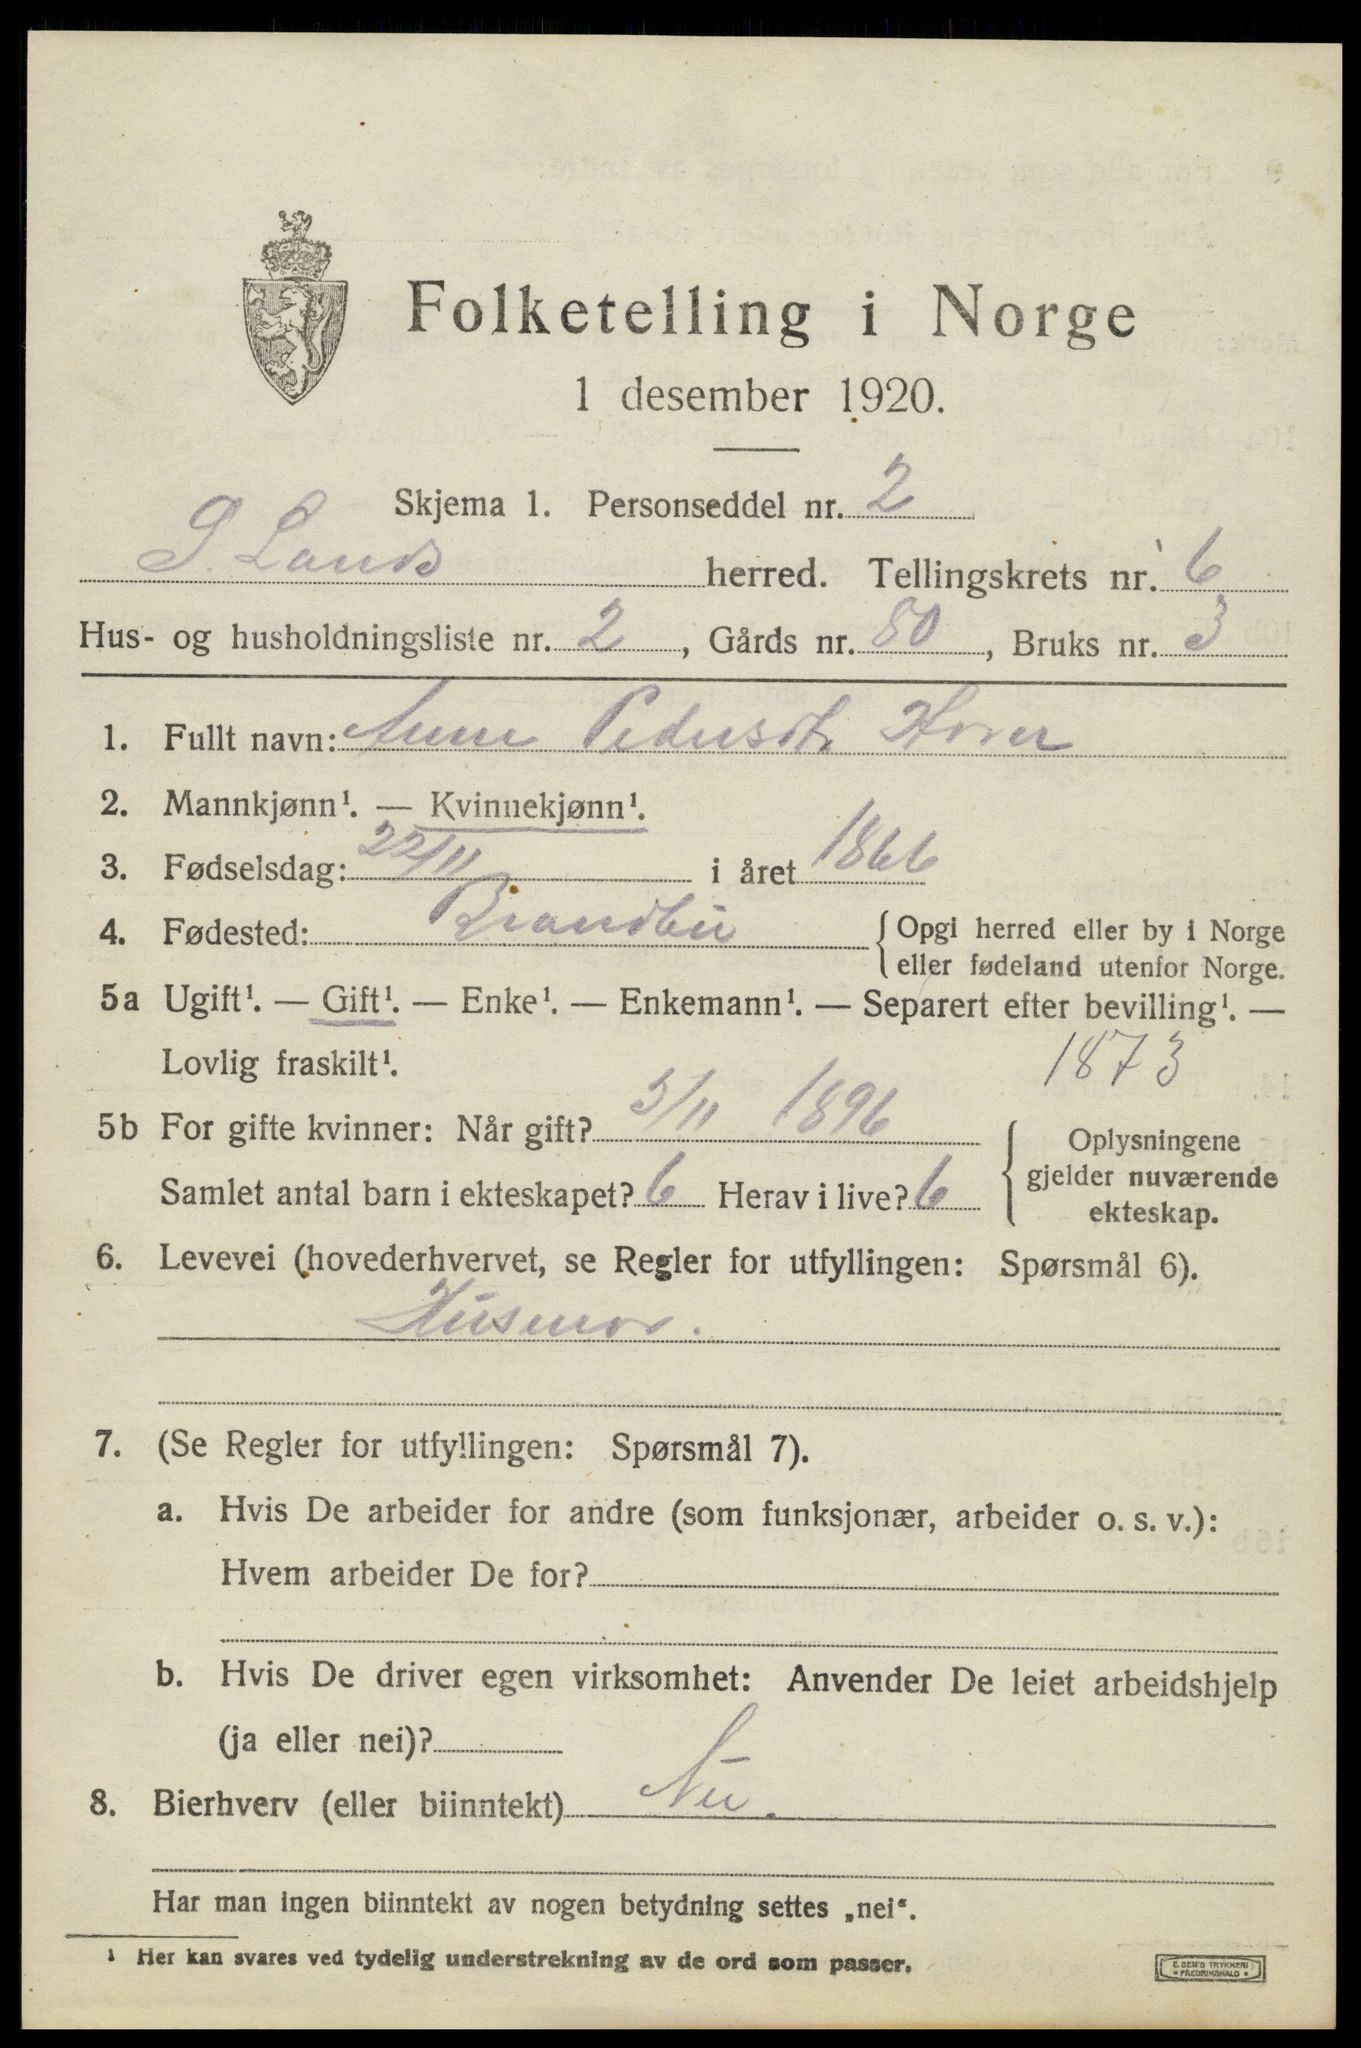 Folketelling i Norge
1 desember 1920.
Skjema 1. Personseddel nr. 2
S. Lands herred. Tellingskrets nr. 6
Hus- og husholdningsliste nr. 2, Gårds nr. 80, Bruks nr. 3
1. Fullt navn: Anne Pedersdt.
2. Mannkjønn¹. — Kvinnekjønn¹.
3. Fødselsdag: 22/11 i året 1866
4. Fødested: Brandbu {Opgi herred eller by i Norge
eller fødeland utenfor Norge.
5a Ugift¹. — Gift¹. — Enke¹. — Enkemann¹. — Separert efter bevilling¹. —
Lovlig fraskilt¹. 1873
5b For gifte kvinner: Når gift? 3/11 1896
Samlet antal barn i ekteskapet? 6 Herav i live? 6
{Oplysningene
gjelder nuværende
ekteskap.
6. Levevei (hovederhvervet, se Regler for utfyllingen: Spørsmål 6).
Husmor.
7. (Se Regler for utfyllingen: Spørsmål 7).
a. Hvis De arbeider for andre (som funksjonær, arbeider o. s. v.):
Hvem arbeider De for?
b. Hvis De driver egen virksomhet: Anvender De leiet arbeidshjelp
(ja eller nei)?
8. Bierhverv (eller biinntekt) Nei.
Har man ingen biinntekt av nogen betydning settes „nei“.
¹ Her kan svares ved tydelig understrekning av de ord som passer.
E. SEM'S TRYKKERI
FREDRIKSHALD